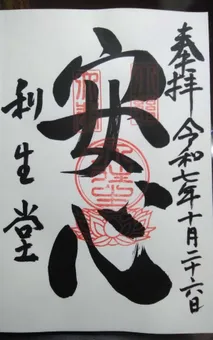 奉拝 令和七年十月二十六日
安心
利生堂